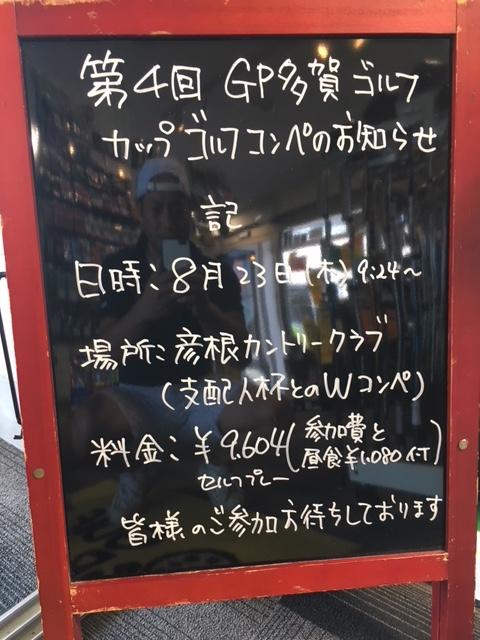 第4回 GP多賀ゴルフ
カップ ゴルフコンペのお知らせ
記
日時:8月23日(木) 9:24~
場所:彦根カントリークラブ
(支配人杯とのWコンペ)
料金:¥9.604(参加費と
昼食¥1,080イ寸)
セルフプレー
皆様のご参加お待ちしております